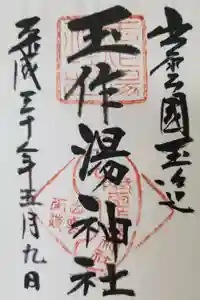 出雲國玉造
玉作湯神社
平成三十年五月九日